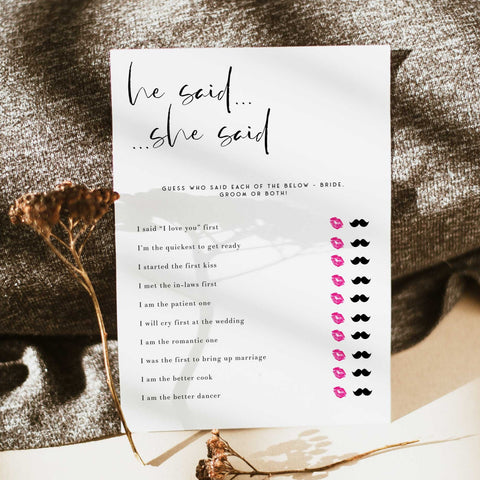 he said...
...she said
GUESS WHO SAID EACH OF THE BELOW - BRIDE,
GROOM OR BOTH!
I said "I love you" first
I'm the quickest to get ready
I started the first kiss
I met the in-laws first
I am the patient one
I will cry first at the wedding
I am the romantic one
I was the first to bring up marriage
I am the better cook
I am the better dancer